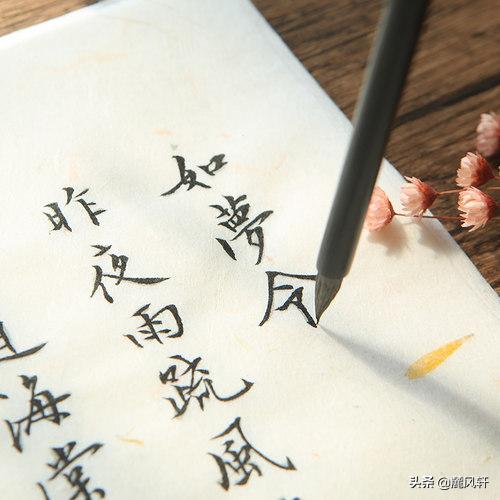 如夢令
昨夜雨疏风
海棠
头条 @麓风轩